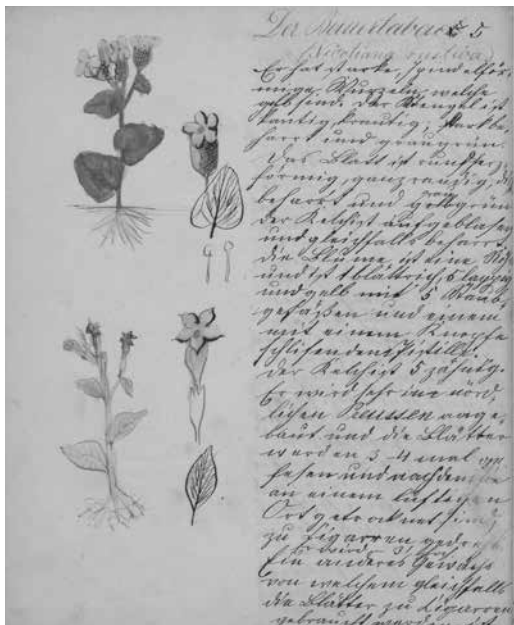 Der Bauertabac 5
(Nicotiana rustica)
Er hat starke, spindelför-
mige Wurzeln, welche
gelb sind. Der Stengel ist
kantig, krautig, stark be-
harrt und graugrün.
Das Blatt ist rundherz-
förmig, ganzrandig,
beharrt und grün
Der Kelch ist aufgeblasen
und gleichfalls beharrt.
Die Blume ist eine
und ist 1blättrich, 5lappig
und gelb mit 5 Staub-
gefäßen und einem
mit einem Knopfe
Pistille.
Der Kelch ist 5 zähnig.
Er wird sehr im nörd-
lichen Preussen ange-
baut und die Blätter
werden 3-4 mal
lesen und nachdem sie
an einem luftigen
Ort getrocknet sind
zu Zigarren gedreht
Ein anderes Gewächs
von welchem gleichfalls
die Blätter zu Cigarren
gebraucht werden ist